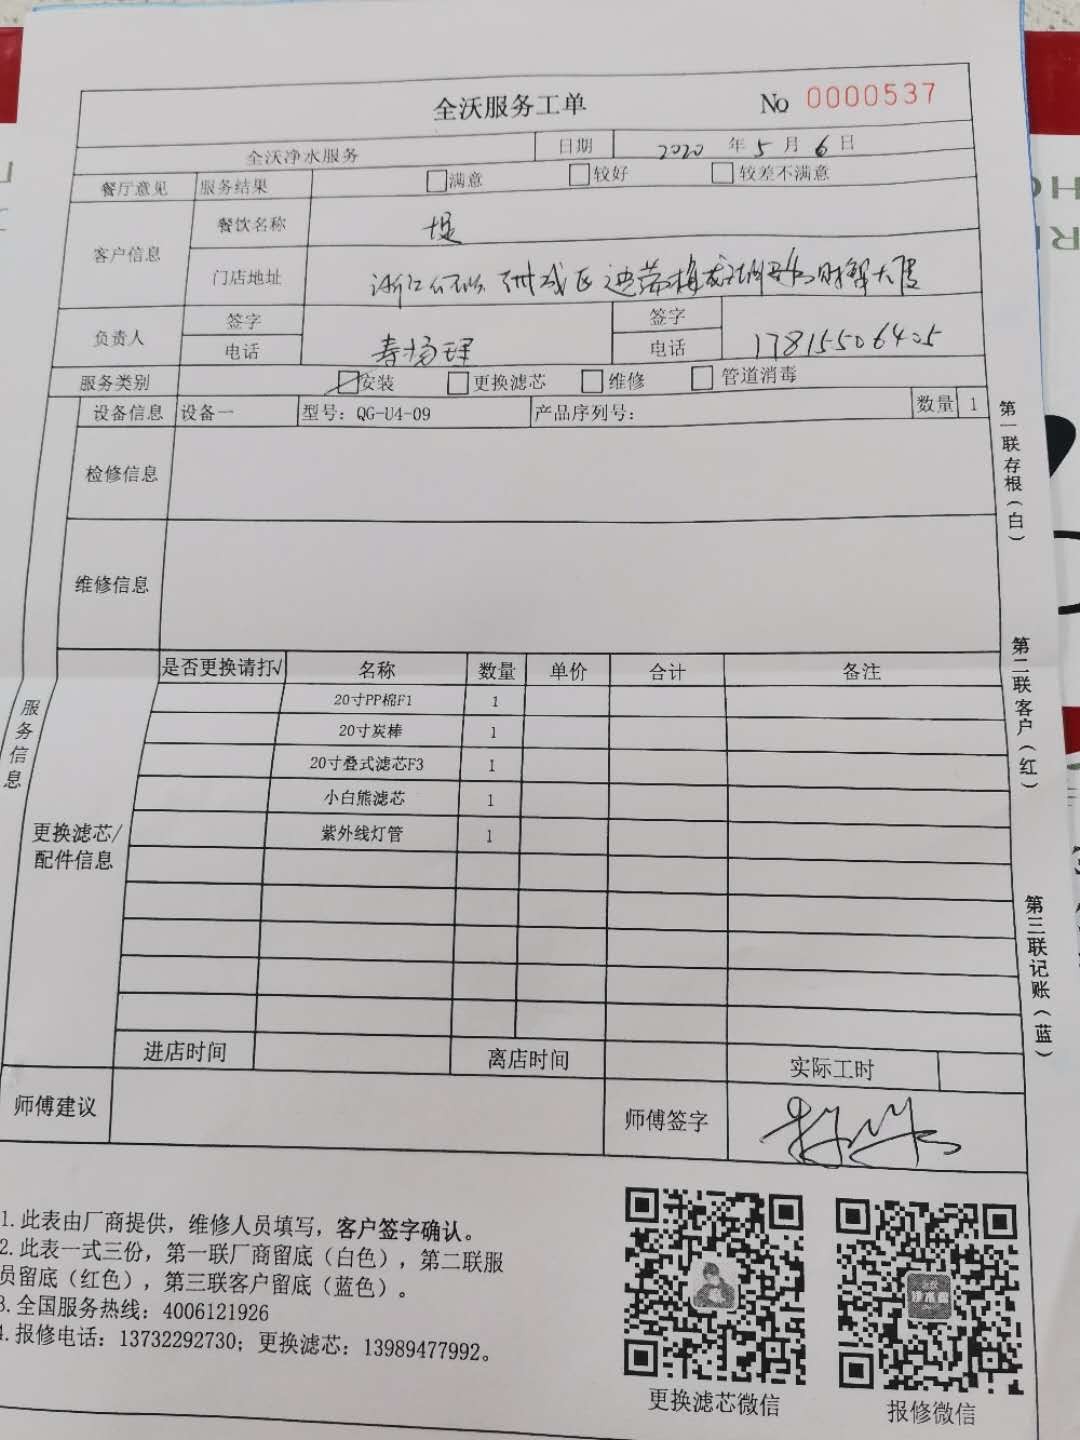 全沃服务工单 No 0000537
全沃净水服务 日期 2020 年 5 月 6 日
餐厅意见 服务结果 满意 较好 较差不满意
客户信息 餐饮名称
门店地址 浙江 财智大厦
负责人 签字 签字
电话 电话 17815506405
服务类别 安装 更换滤芯 维修 管道消毒
设备信息 设备一 型号：QG-U4-09 产品序列号： 数量 1
检修信息
维修信息
服务信息
更换滤芯/
配件信息
是否更换请打√ 名称 数量 单价 合计 备注
20寸PP棉F1 1
20寸炭棒 1
20寸叠式滤芯F3 1
小白熊滤芯 1
紫外线灯管 1
进店时间 离店时间 实际工时
师傅建议 师傅签字
第一联存根（白）
第二联客户（红）
第三联记账（蓝）
1.此表由厂商提供，维修人员填写，客户签字确认。
2.此表一式三份，第一联厂商留底（白色），第二联服
员留底（红色），第三联客户留底（蓝色）。
3.全国服务热线：4006121926
4.报修电话：13732292730；更换滤芯：13989477992。
更换滤芯微信
报修微信